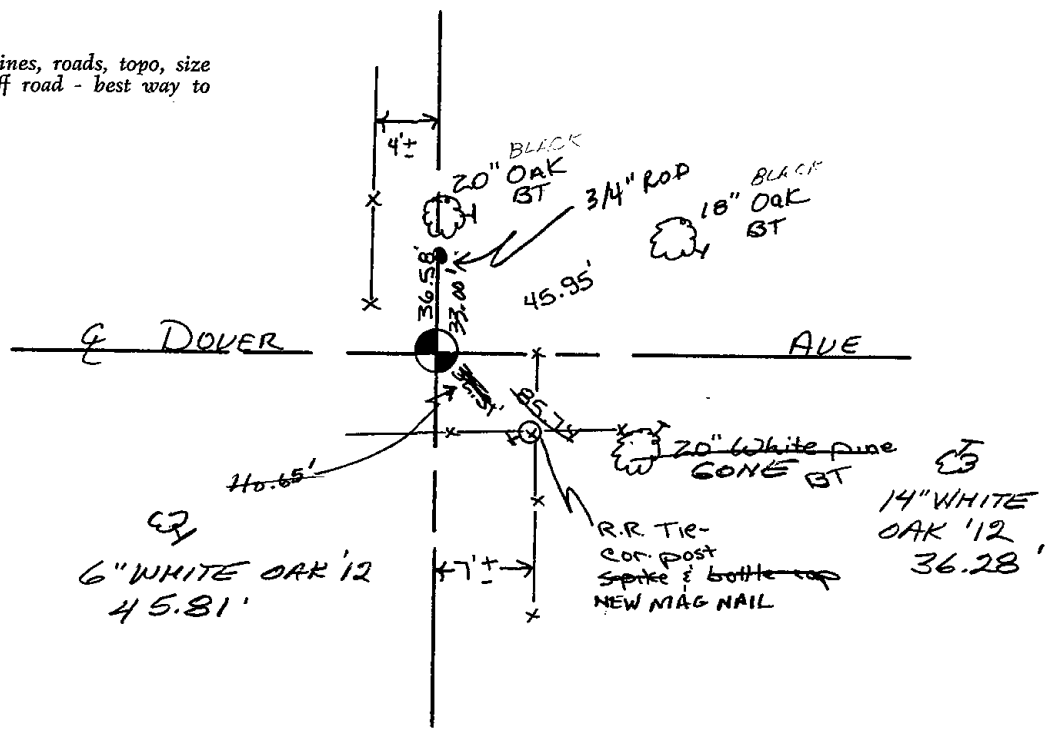 ines, roads, topo, size
ff road - best way to
4'±
20" BLACK OAK
BT
3/4" ROD
18" BLACK OAK
BT
36.58'
33.00'
45.95'
℄ DOVER AVE
110.65'
20" White pine
GONE BT
14" WHITE
OAK '12
36.28'
6" WHITE OAK '12
45.81'
7'±
R.R. Tie-
cor. post
spike & bottle cap
NEW MAG NAIL